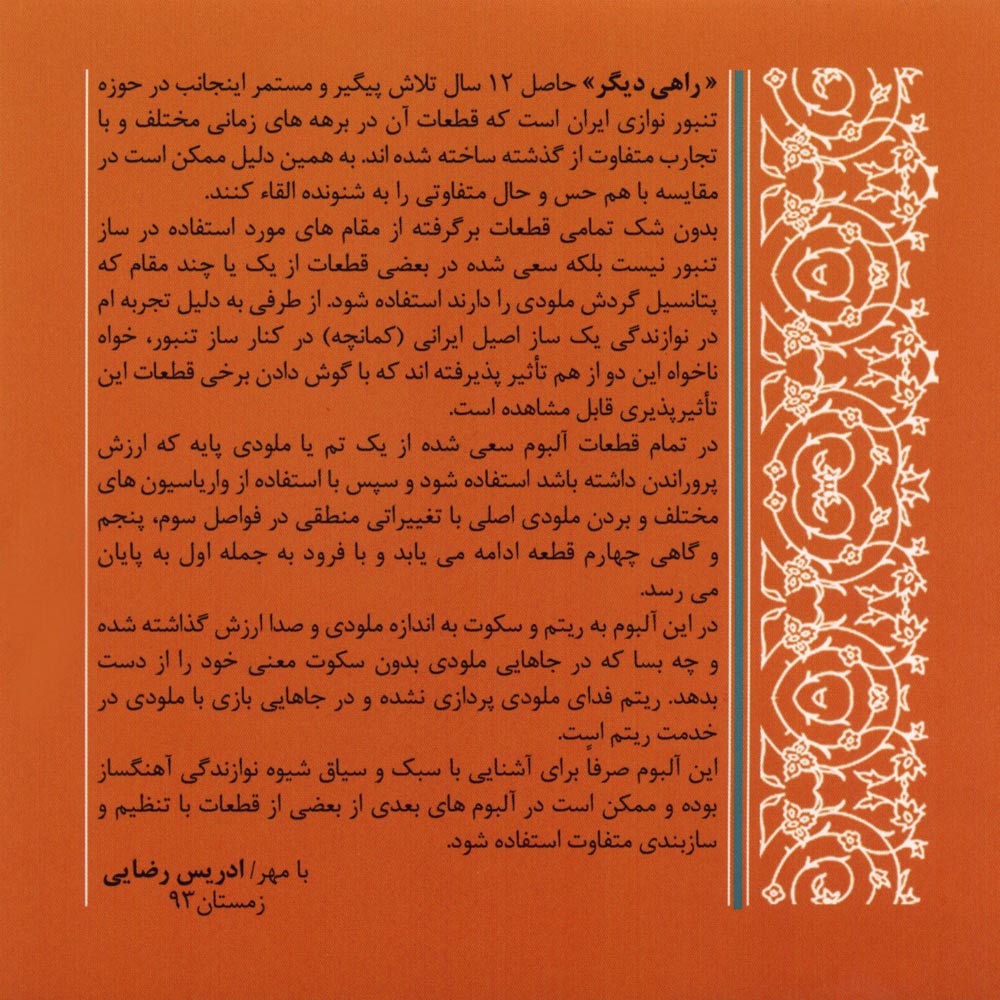 «راهی دیگر» حاصل ۱۲ سال تلاش پیگیر و مستمر اینجانب در حوزه
تنبور نوازی ایران است که قطعات آن در برهه های زمانی مختلف و با
تجارب متفاوت از گذشته ساخته شده اند. به همین دلیل ممکن است در
مقایسه با هم حس و حال متفاوتی را به شنونده القاء کنند.
بدون شک تمامی قطعات برگرفته از مقام های مورد استفاده در ساز
تنبور نیست بلکه سعی شده در بعضی قطعات از یک یا چند مقام که
پتانسیل گردش ملودی را دارند استفاده شود. از طرفی به دلیل تجربه ام
در نوازندگی یک ساز اصیل ایرانی (کمانچه) در کنار ساز تنبور، خواه
ناخواه این دو از هم تأثیر پذیرفته اند که با گوش دادن برخی قطعات این
تأثیرپذیری قابل مشاهده است.
در تمام قطعات آلبوم سعی شده از یک تم یا ملودی پایه که ارزش
پروراندن داشته باشد استفاده شود و سپس با استفاده از واریاسیون های
مختلف و بردن ملودی اصلی با تغییراتی منطقی در فواصل سوم، پنجم
و گاهی چهارم قطعه ادامه می یابد و با فرود به جمله اول به پایان
می رسد.
در این آلبوم به ریتم و سکوت به اندازه ملودی و صدا ارزش گذاشته شده
و چه بسا که در جاهایی ملودی بدون سکوت معنی خود را از دست
بدهد. ریتم فدای ملودی پردازی نشده و در جاهایی بازی با ملودی در
خدمت ریتم است.
این آلبوم صرفاً برای آشنایی با سبک و سیاق شیوه نوازندگی آهنگساز
بوده و ممکن است در آلبوم های بعدی از بعضی از قطعات با تنظیم و
سازبندی متفاوت استفاده شود.
با مهر/ ادریس رضایی
زمستان۹۳